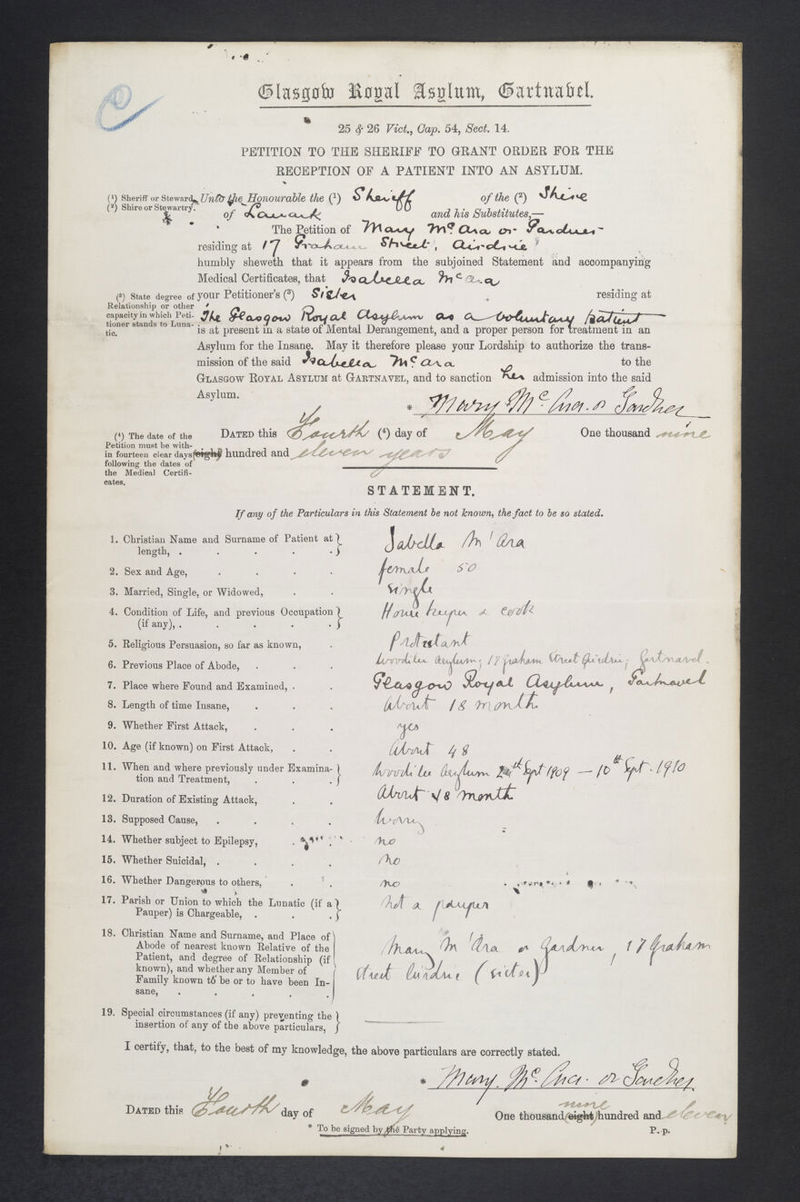 Glasgow Royal Asylum, Gartnavel.
25 & 26 Vict., Cap. 54, Sect. 14.
PETITION TO THE SHERIFF TO GRANT ORDER FOR THE
RECEPTION OF A PATIENT INTO AN ASYLUM.
(1) Sheriff or Steward.
(2) Shire or Stewartry.
Unto the Honourable the (1) Sheriff of the (2) Shire
of Lanark and his Substitutes,—
The Petition of Mary McAra or Gardner
residing at 17 Graham Street, Airdrie
humbly sheweth that it appears from the subjoined Statement and accompanying
Medical Certificates, that Isabella McAra
(3) State degree of
Relationship or other
capacity in which Peti-
tioner stands to Luna-
tic.
your Petitioner's (3) Sister residing at
The Glasgow Royal Asylum as a voluntary patient
is at present in a state of Mental Derangement, and a proper person for treatment in an
Asylum for the Insane. May it therefore please your Lordship to authorize the trans-
mission of the said Isabella McAra to the
GLASGOW ROYAL ASYLUM at GARTNAVEL, and to sanction her admission into the said
Asylum.
* Mary McAra or Gardner
(4) The date of the
Petition must be with-
in fourteen clear days
following the dates of
the Medical Certifi-
cates.
DATED this Fourth (4) day of May One thousand nine
(eight) hundred and eleven years
STATEMENT.
If any of the Particulars in this Statement be not known, the fact to be so stated.
1. Christian Name and Surname of Patient at
length, . Isabella M'Ara
2. Sex and Age, female 50
3. Married, Single, or Widowed, Single
4. Condition of Life, and previous Occupation
(if any), . House keeper & cook
5. Religious Persuasion, so far as known, Protestant
6. Previous Place of Abode, Woodilee Asylum; 17 Graham Street Airdrie; Gartnavel.
7. Place where Found and Examined, Glasgow Royal Asylum, Gartnavel
8. Length of time Insane, About 18 month
9. Whether First Attack, yes
10. Age (if known) on First Attack, About 48
11. When and where previously under Examina-
tion and Treatment, Woodilee Asylum Sept 1909 — 10th Sept. 1910
12. Duration of Existing Attack, About 18 month
13. Supposed Cause, Worry
14. Whether subject to Epilepsy, no
15. Whether Suicidal, no
16. Whether Dangerous to others, no
17. Parish or Union to which the Lunatic (if a
Pauper) is Chargeable, Not a pauper
18. Christian Name and Surname, and Place of
Abode of nearest known Relative of the
Patient, and degree of Relationship (if
known), and whether any Member of
Family known to be or to have been In-
sane,
Mary M'Ara or Gardner, 17 Graham
Street Airdrie (sister)
19. Special circumstances (if any) preventing the
insertion of any of the above particulars,
I certify, that, to the best of my knowledge, the above particulars are correctly stated.
* Mary. McAra. or Gardner
DATED this Fourth day of May One thousand (eight) nine hundred and eleven
* To be signed by the Party applying.
P. p.